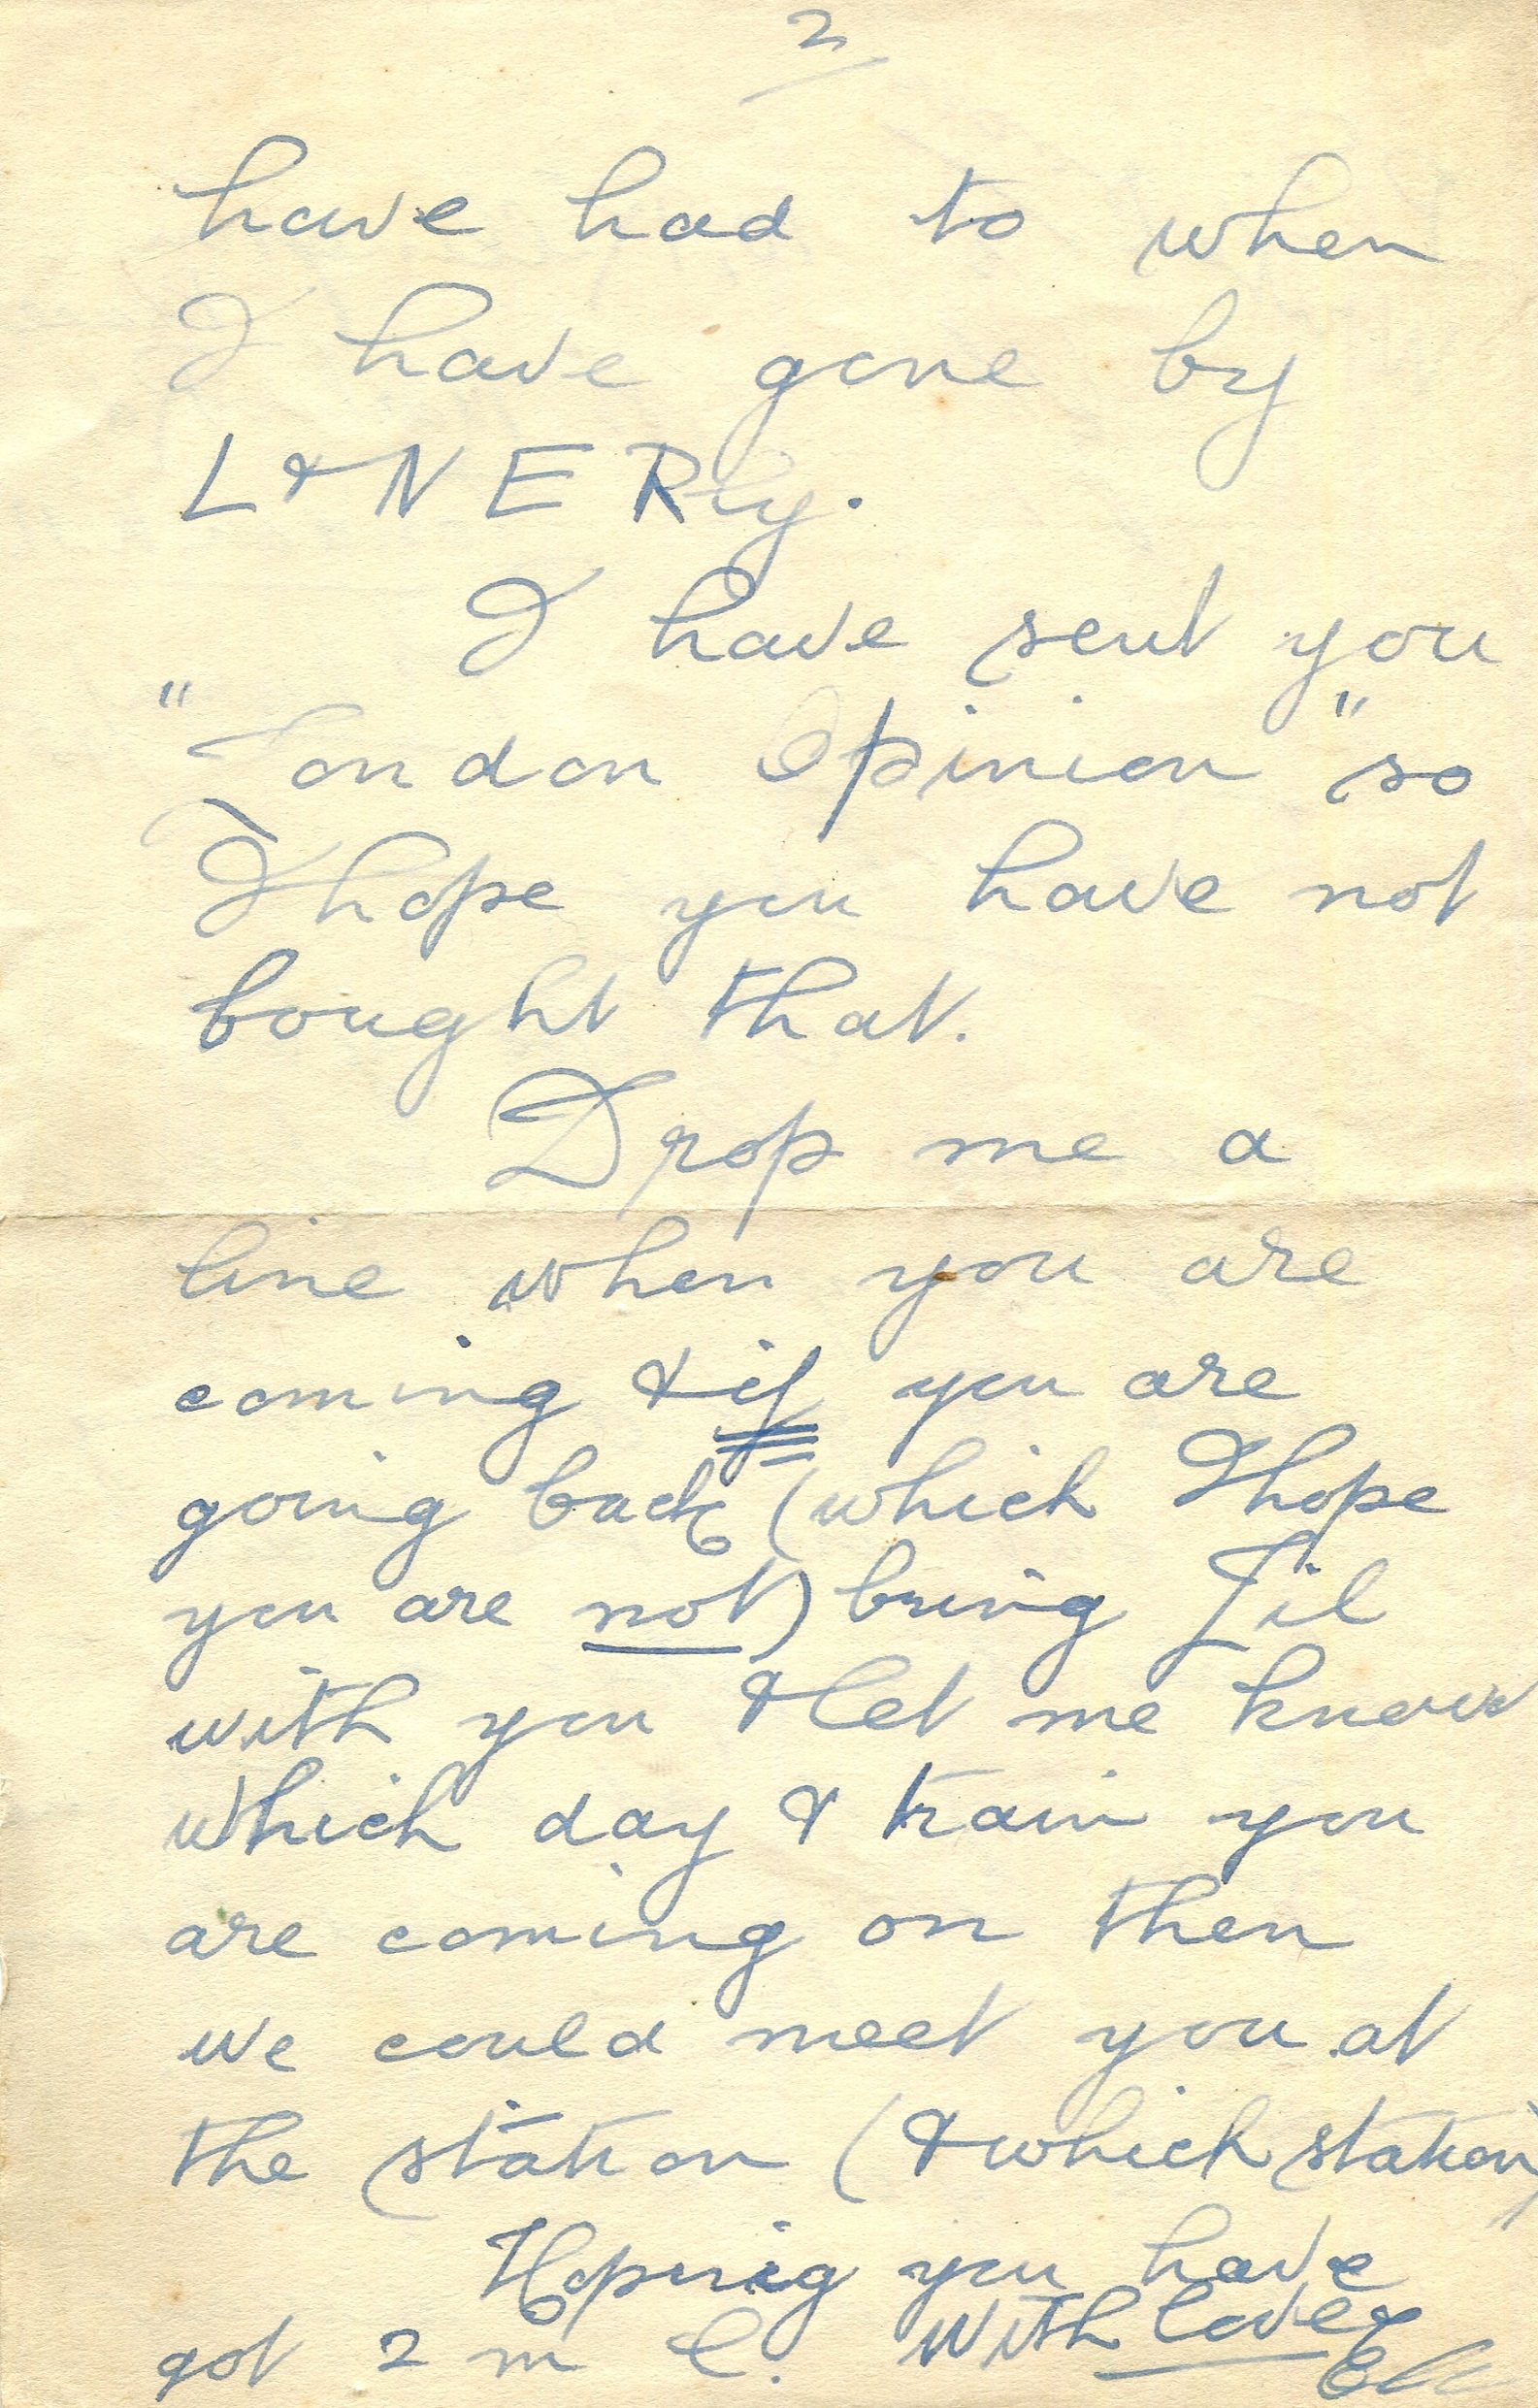 2
have had to when
I have gone by
L & N E Rly.
I have sent you
"London Opinion" so
I hope you have not
bought that.
Drop me a
line when you are
coming & if you are
going back (which I hope
you are not) bring Jil
with you & let me know
which day & train you
are coming on then
we could meet you at
the station (& which station)
Hoping you have
got 2 m l. with love